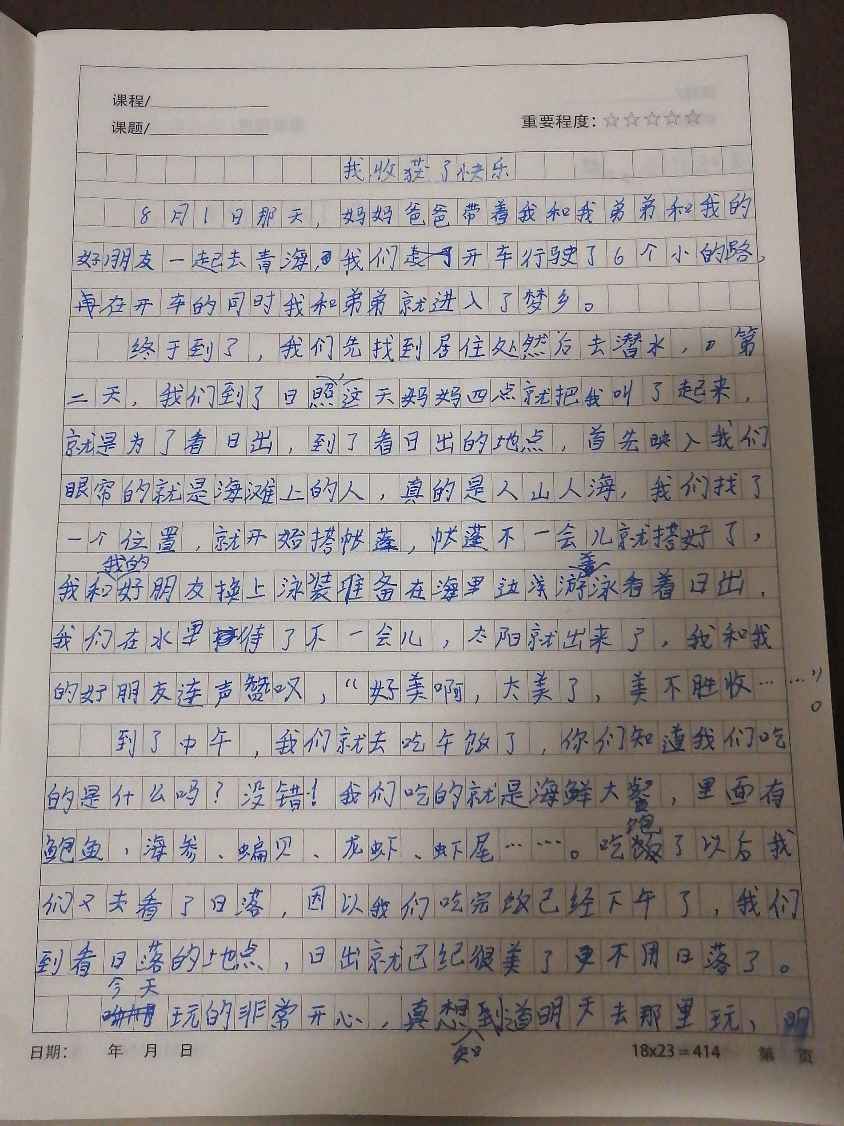 课程/
课题/
重要程度：☆☆☆☆☆
我收获了快乐
8月1日那天，妈妈爸爸带着我和我弟弟和我的
好朋友一起去青海，我们开车行驶了6个小的路，
再在开车的同时我和弟弟就进入了梦乡。
终于到了，我们先找到居住处然后去潜水，。第
二天，我们到了日照，这天妈妈四点就把我叫了起来，
就是为了看日出，到了看日出的地点，首先映入我们
眼帘的就是海滩上的人，真的是人山人海，我们找了
一个位置，就开始搭帐蓬，帐蓬不一会儿就搭好了，
我和我的好朋友换上泳装准备在海里边游着泳看着日出，
我们在水里待了不一会儿，太阳就出来了，我和我
的好朋友连声赞叹，“好美啊，太美了，美不胜收……”。
到了中午，我们就去吃午饭了，你们知道我们吃
的是什么吗？没错！我们吃的就是海鲜大餐，里面有
鲍鱼、海参、蝙贝、龙虾、虾尾……。吃饱了以后我
们又去看了日落，因以我们吃完饭已经下午了，我们
到看日落的地点，日出就已纪很美了更不用日落了。
今天玩的非常开心，真想知到道明天去那里玩、明
日期： 年 月 日
18x23=414 第 页